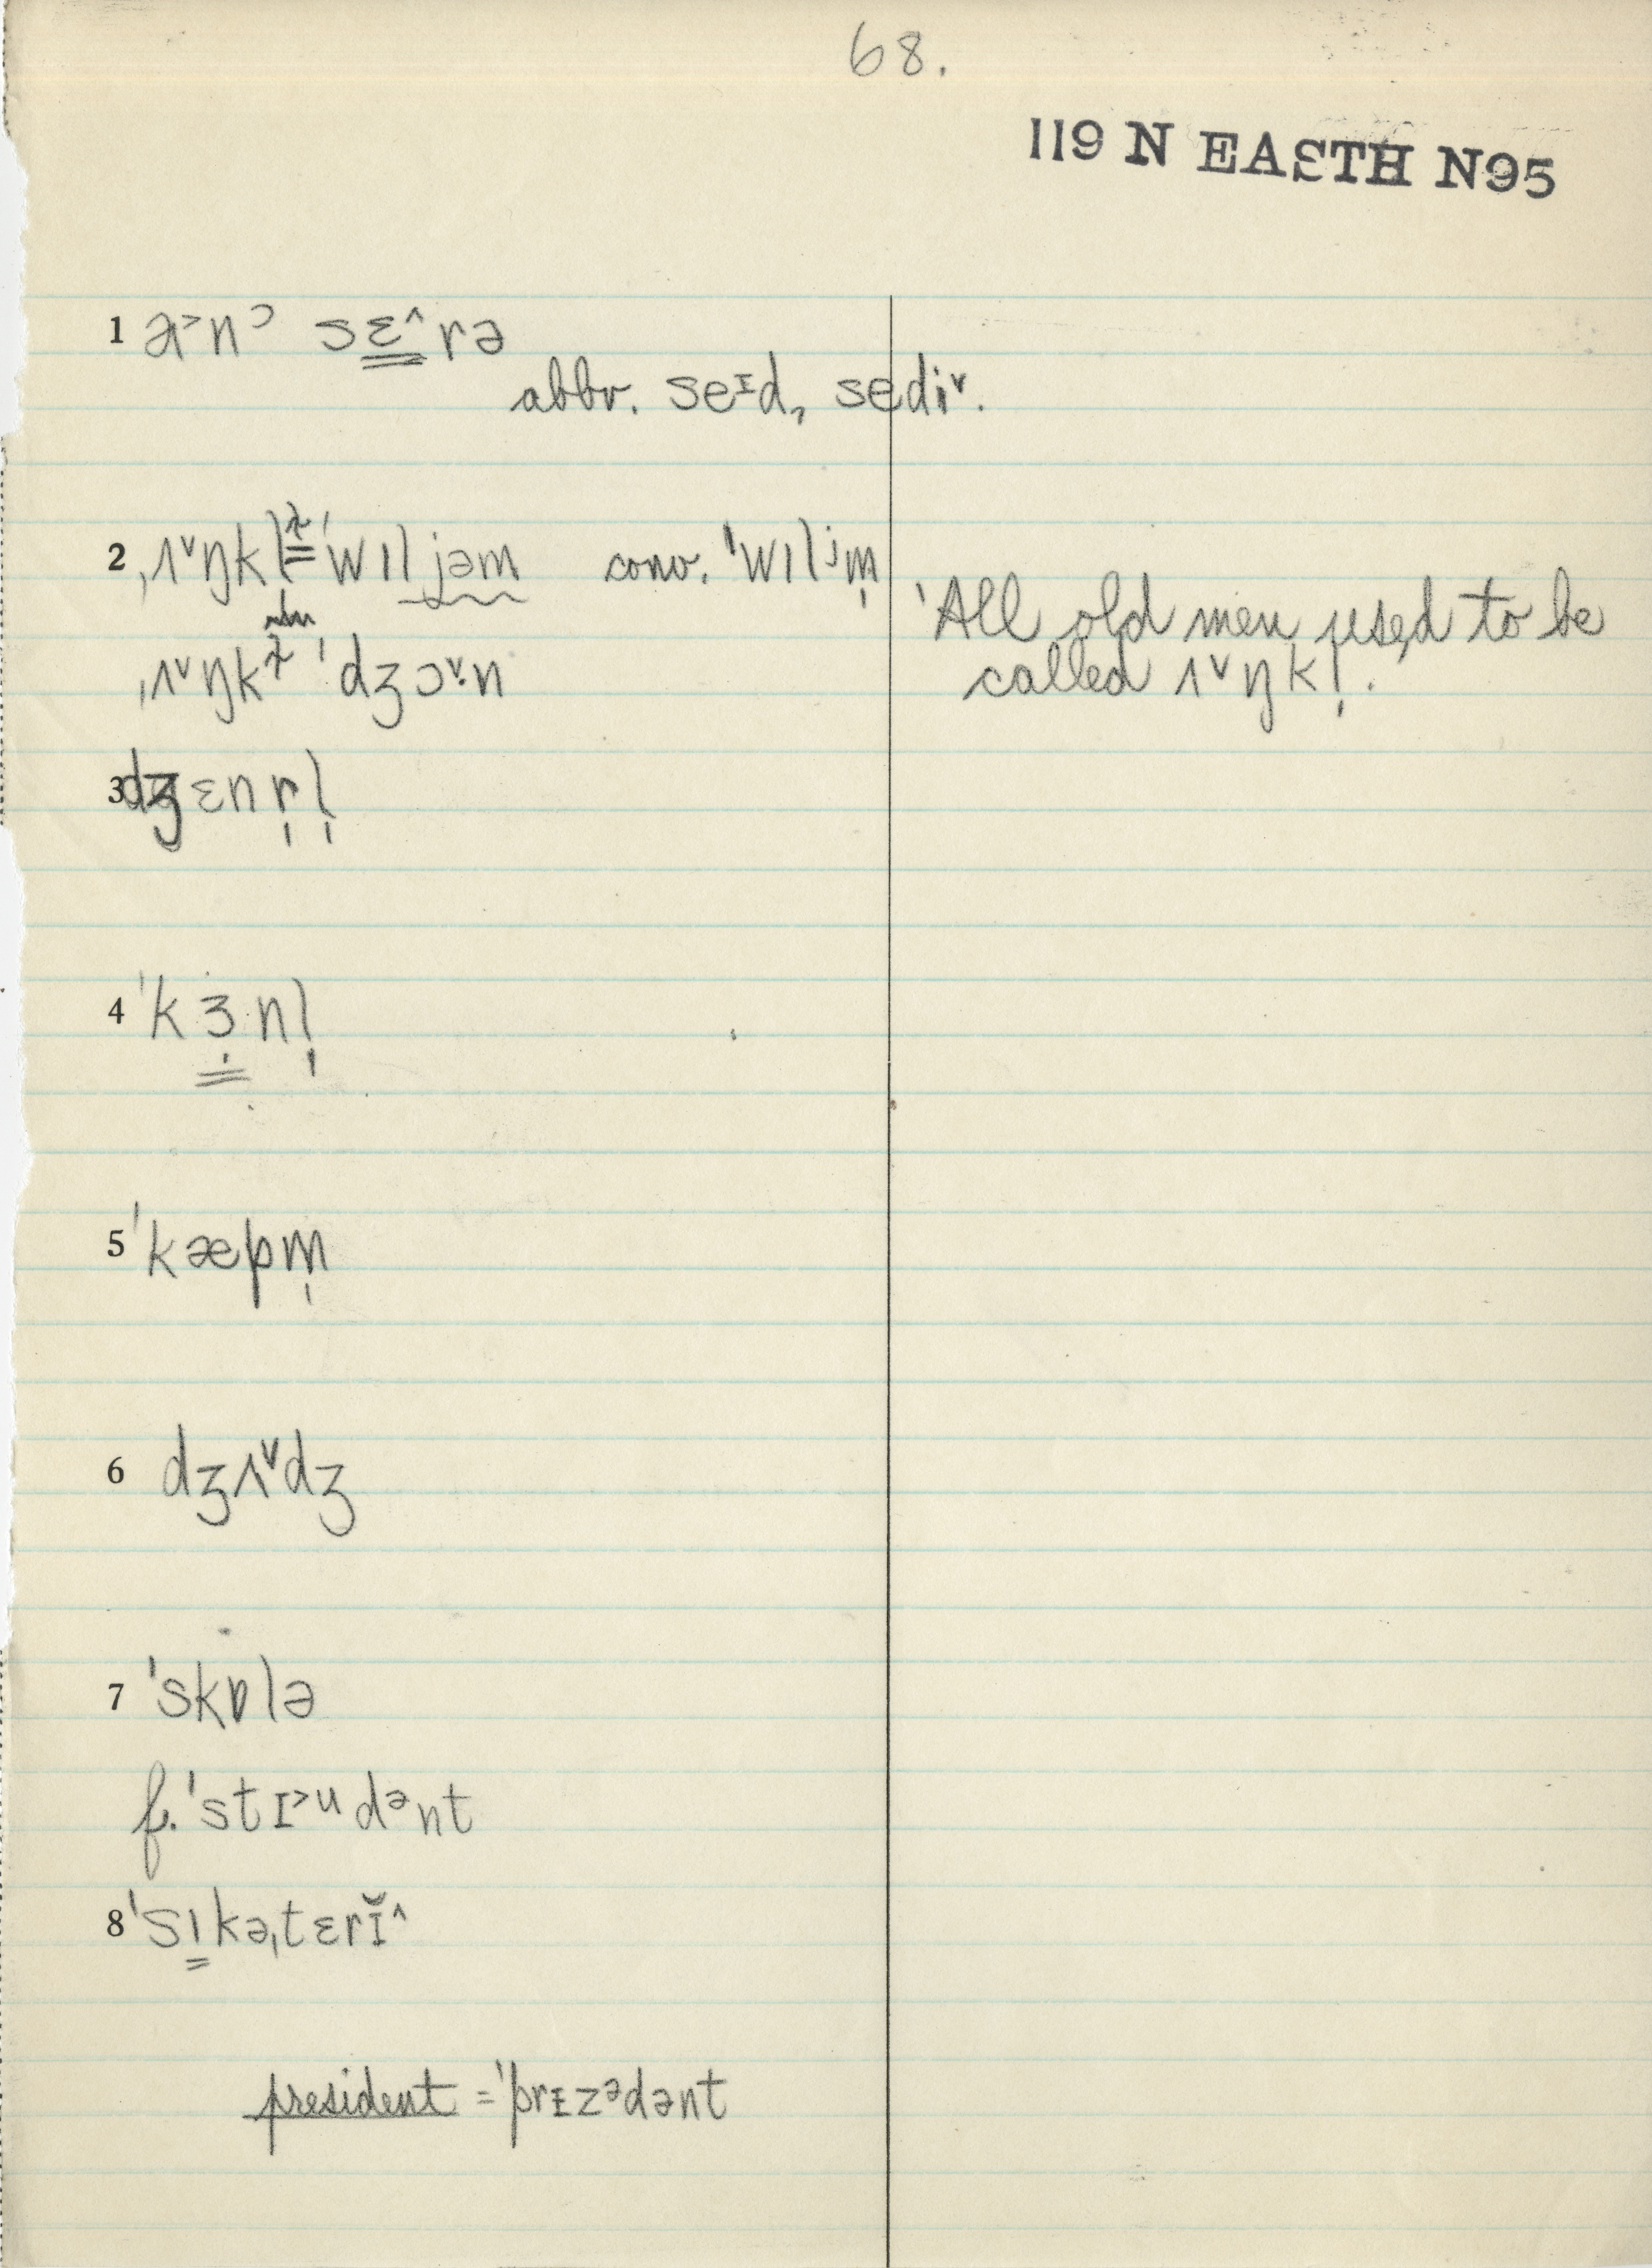 68.
119 N EASTH N95
1 a˃nᵓ sɛ˄rə
abbr. seᶦd, sedi˅.
2 ˌʌ˅ŋkl̩ ˈwɪljəm conv. ˈwɪlʲm̩
'All old men used to be
ˌʌ˅ŋk ˈdʒɔ˅n called ʌ˅ŋkl̩.
3 dʒɛnr̩l̩
4 ˈkɜnl̩
5 ˈkæpm̩
6 dʒʌ˅dʒ
7 ˈskɒlə
f. ˈstɪ˃ᵘdᵊnt
8 ˈsɪkəˌtɛrɪ̆˄
president = ˈprɪzᵊdənt